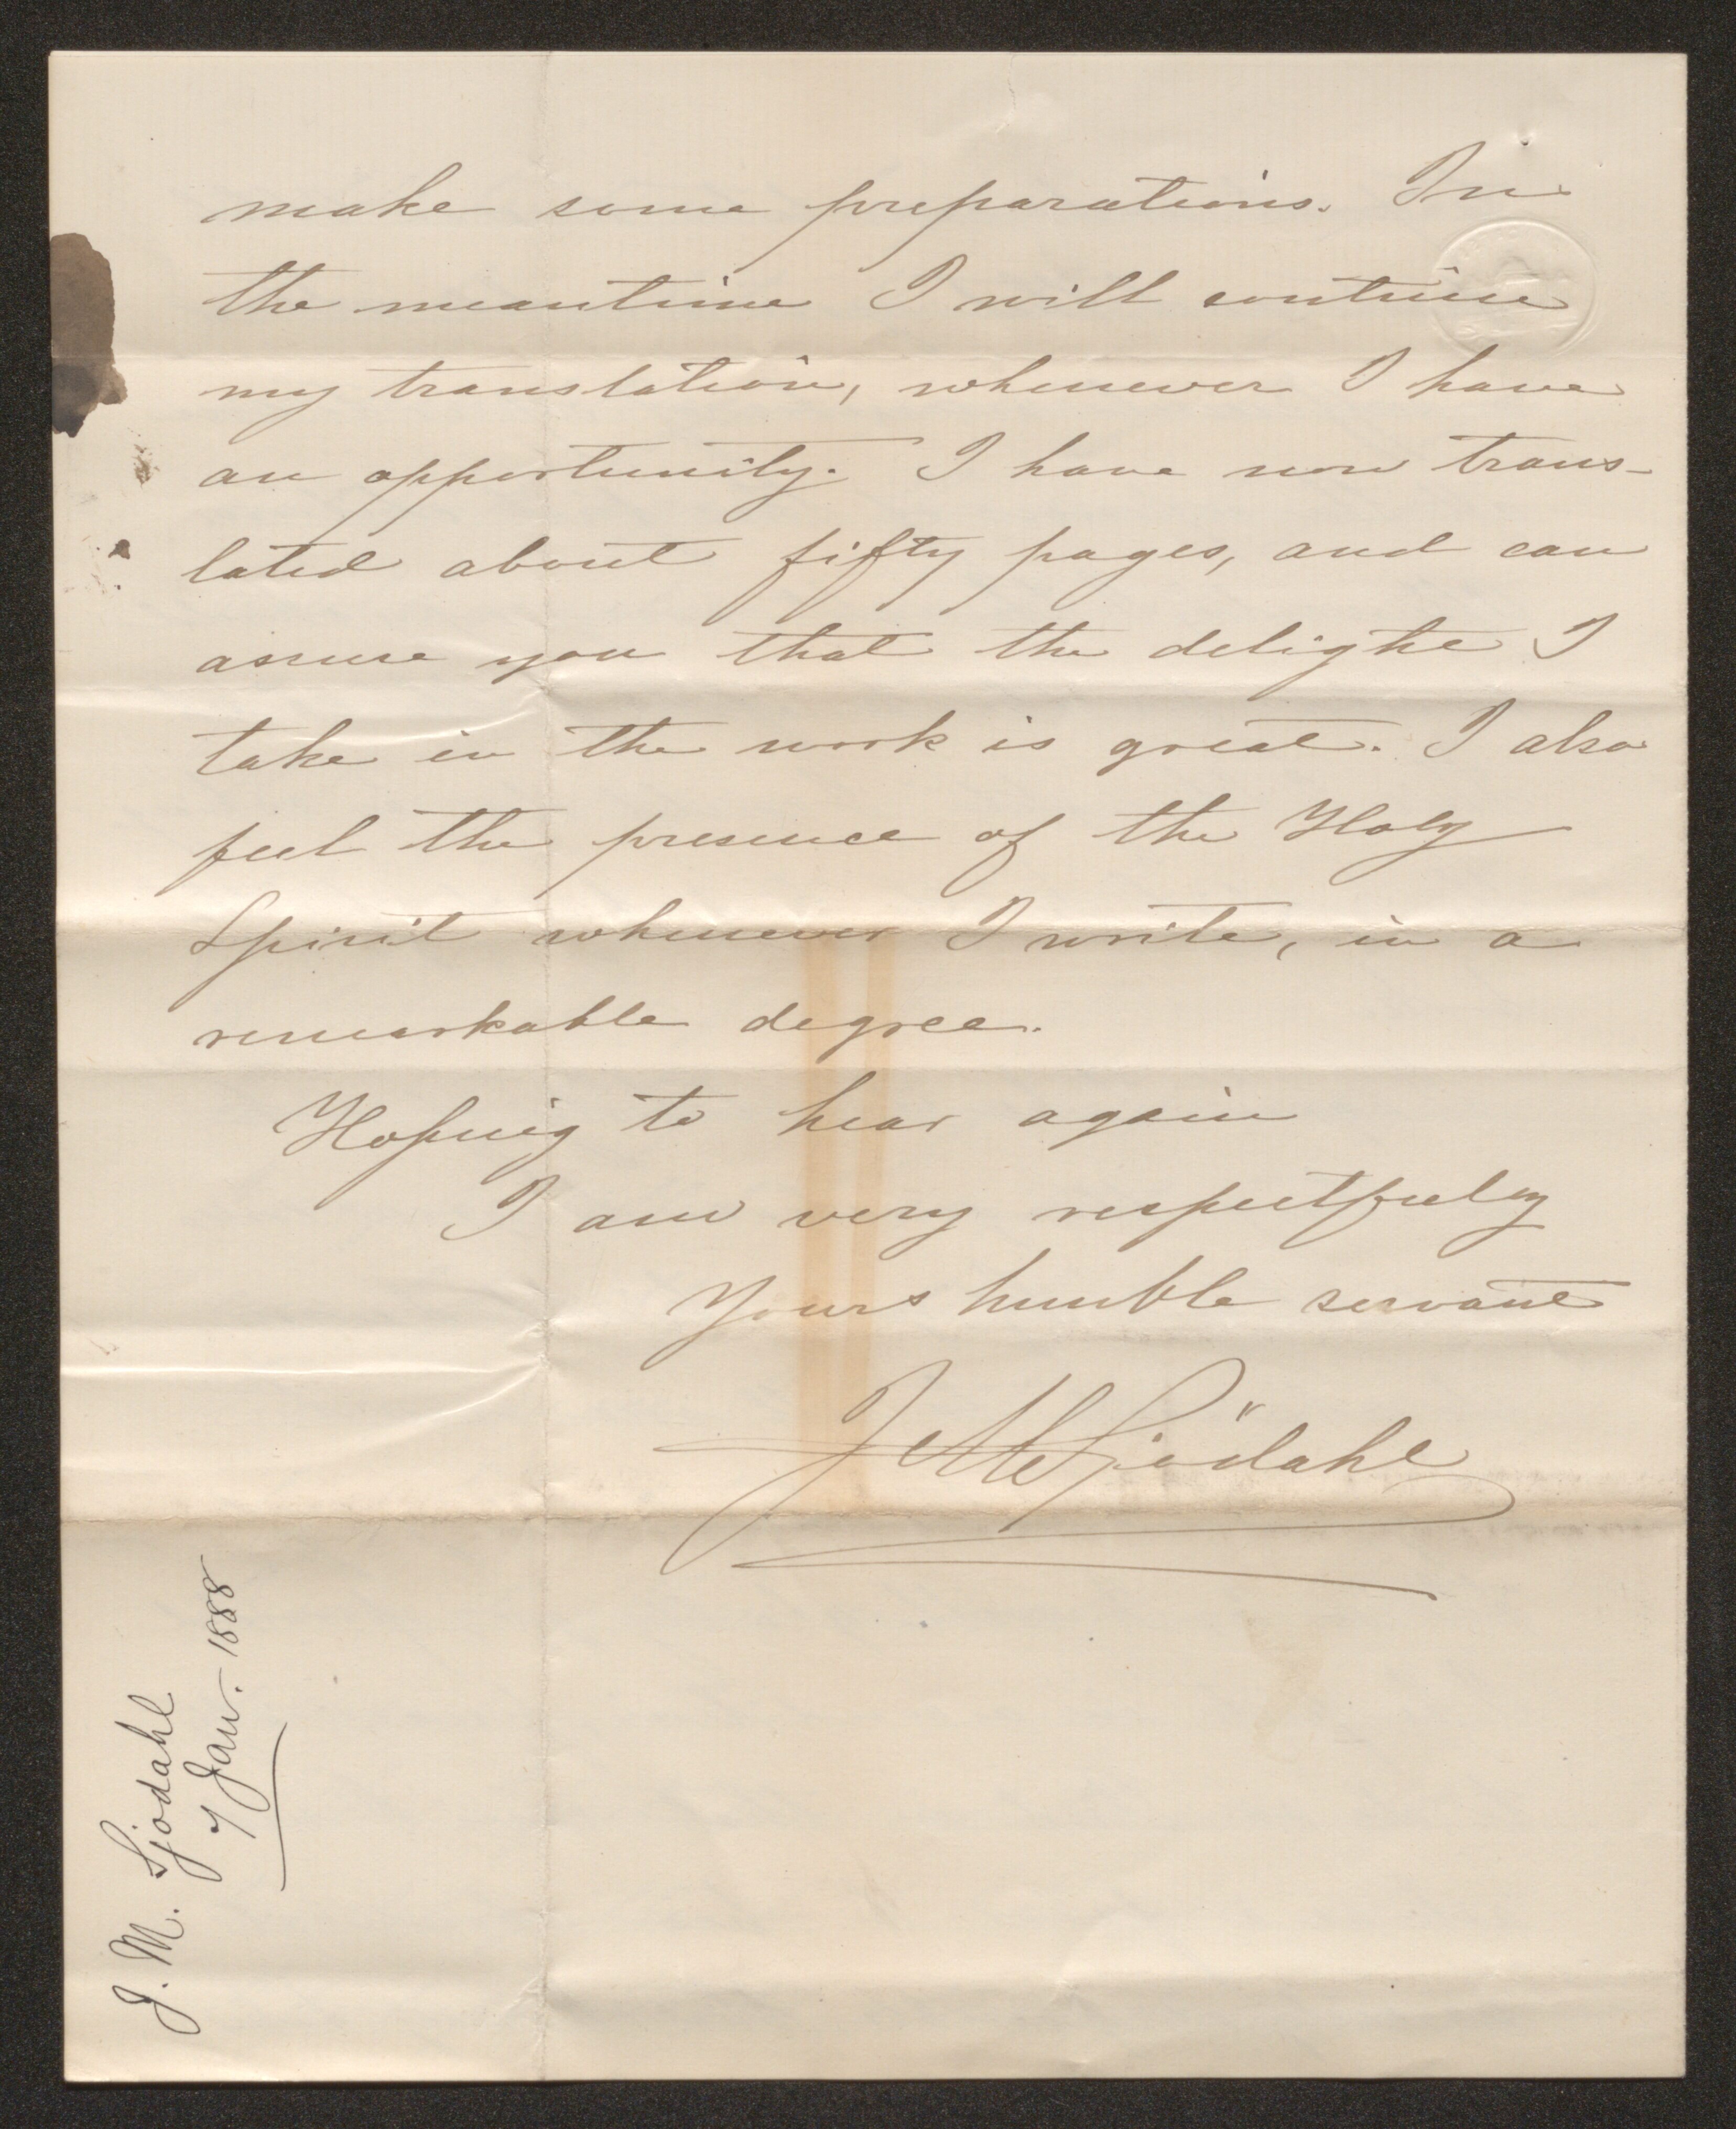 make some preparations. In
the meantime I will continue
my translation, whenever I have
an opportunity. I have now trans-
lated about fifty pages, and can
assure you that the delight I
take in the work is great. I also
feel the presence of the Holy
Spirit whenever I write, in a
remarkable degree.
Hoping to hear again
I am very respectfuly
Yours humble servant
J M Sjödahl
J. M. Sjodahl
7 Jan. 1888